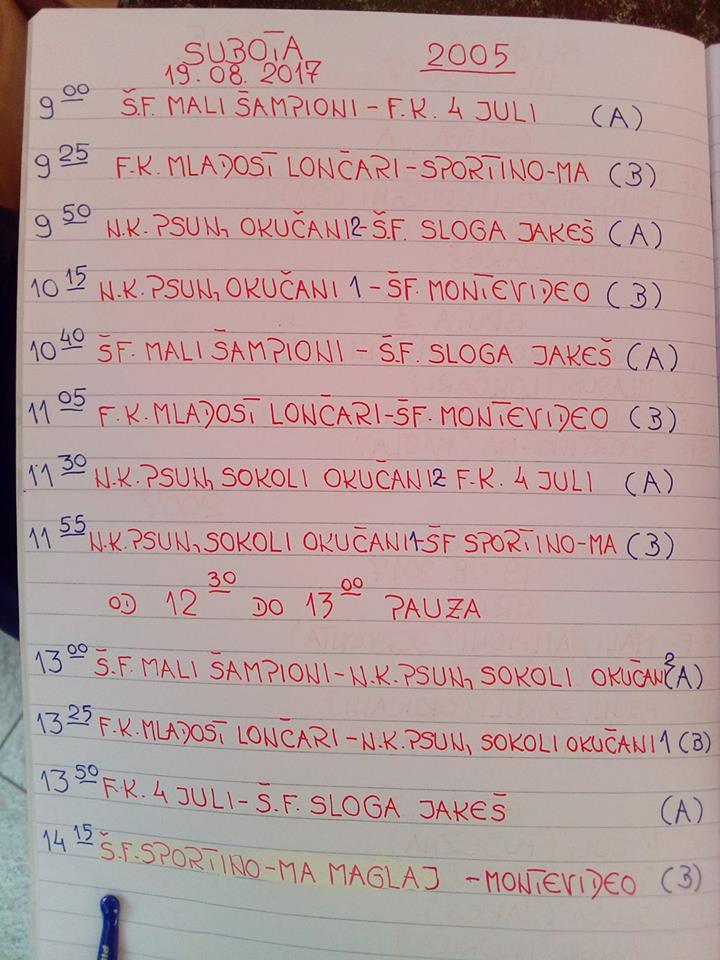 SUBOTA 2005
19.08.2017
9 00 Š.F. MALI ŠAMPIONI - F.K. 4 JULI (A)
9 25 F.K. MLADOST LONČARI - SPORTINO-MA (B)
9 50 N.K. PSUNJ OKUČANI 2 - Š.F. SLOGA JAKEŠ (A)
10 15 N.K. PSUNJ, OKUČANI 1 - ŠF. MONTEVIDEO (B)
10 40 ŠF. MALI ŠAMPIONI - Š.F. SLOGA JAKEŠ (A)
11 05 F.K. MLADOST LONČARI - ŠF. MONTEVIDEO (B)
11 30 N.K. PSUNJ SOKOLI OKUČANI 2 F.K. 4 JULI (A)
11 55 N.K. PSUNJ, SOKOLI OKUČANI 1 - ŠF SPORTINO-MA (B)
OD 12 30 DO 13 00 PAUZA
13 00 Š.F. MALI ŠAMPIONI - N.K. PSUNJ SOKOLI OKUČANI 2 (A)
13 25 F.K. MLADOST LONČARI - N.K. PSUNJ SOKOLI OKUČANI 1 (B)
13 50 F.K. 4 JULI - Š.F. SLOGA JAKEŠ (A)
14 15 Š.F. SPORTINO-MA MAGLAJ - MONTEVIDEO (B)